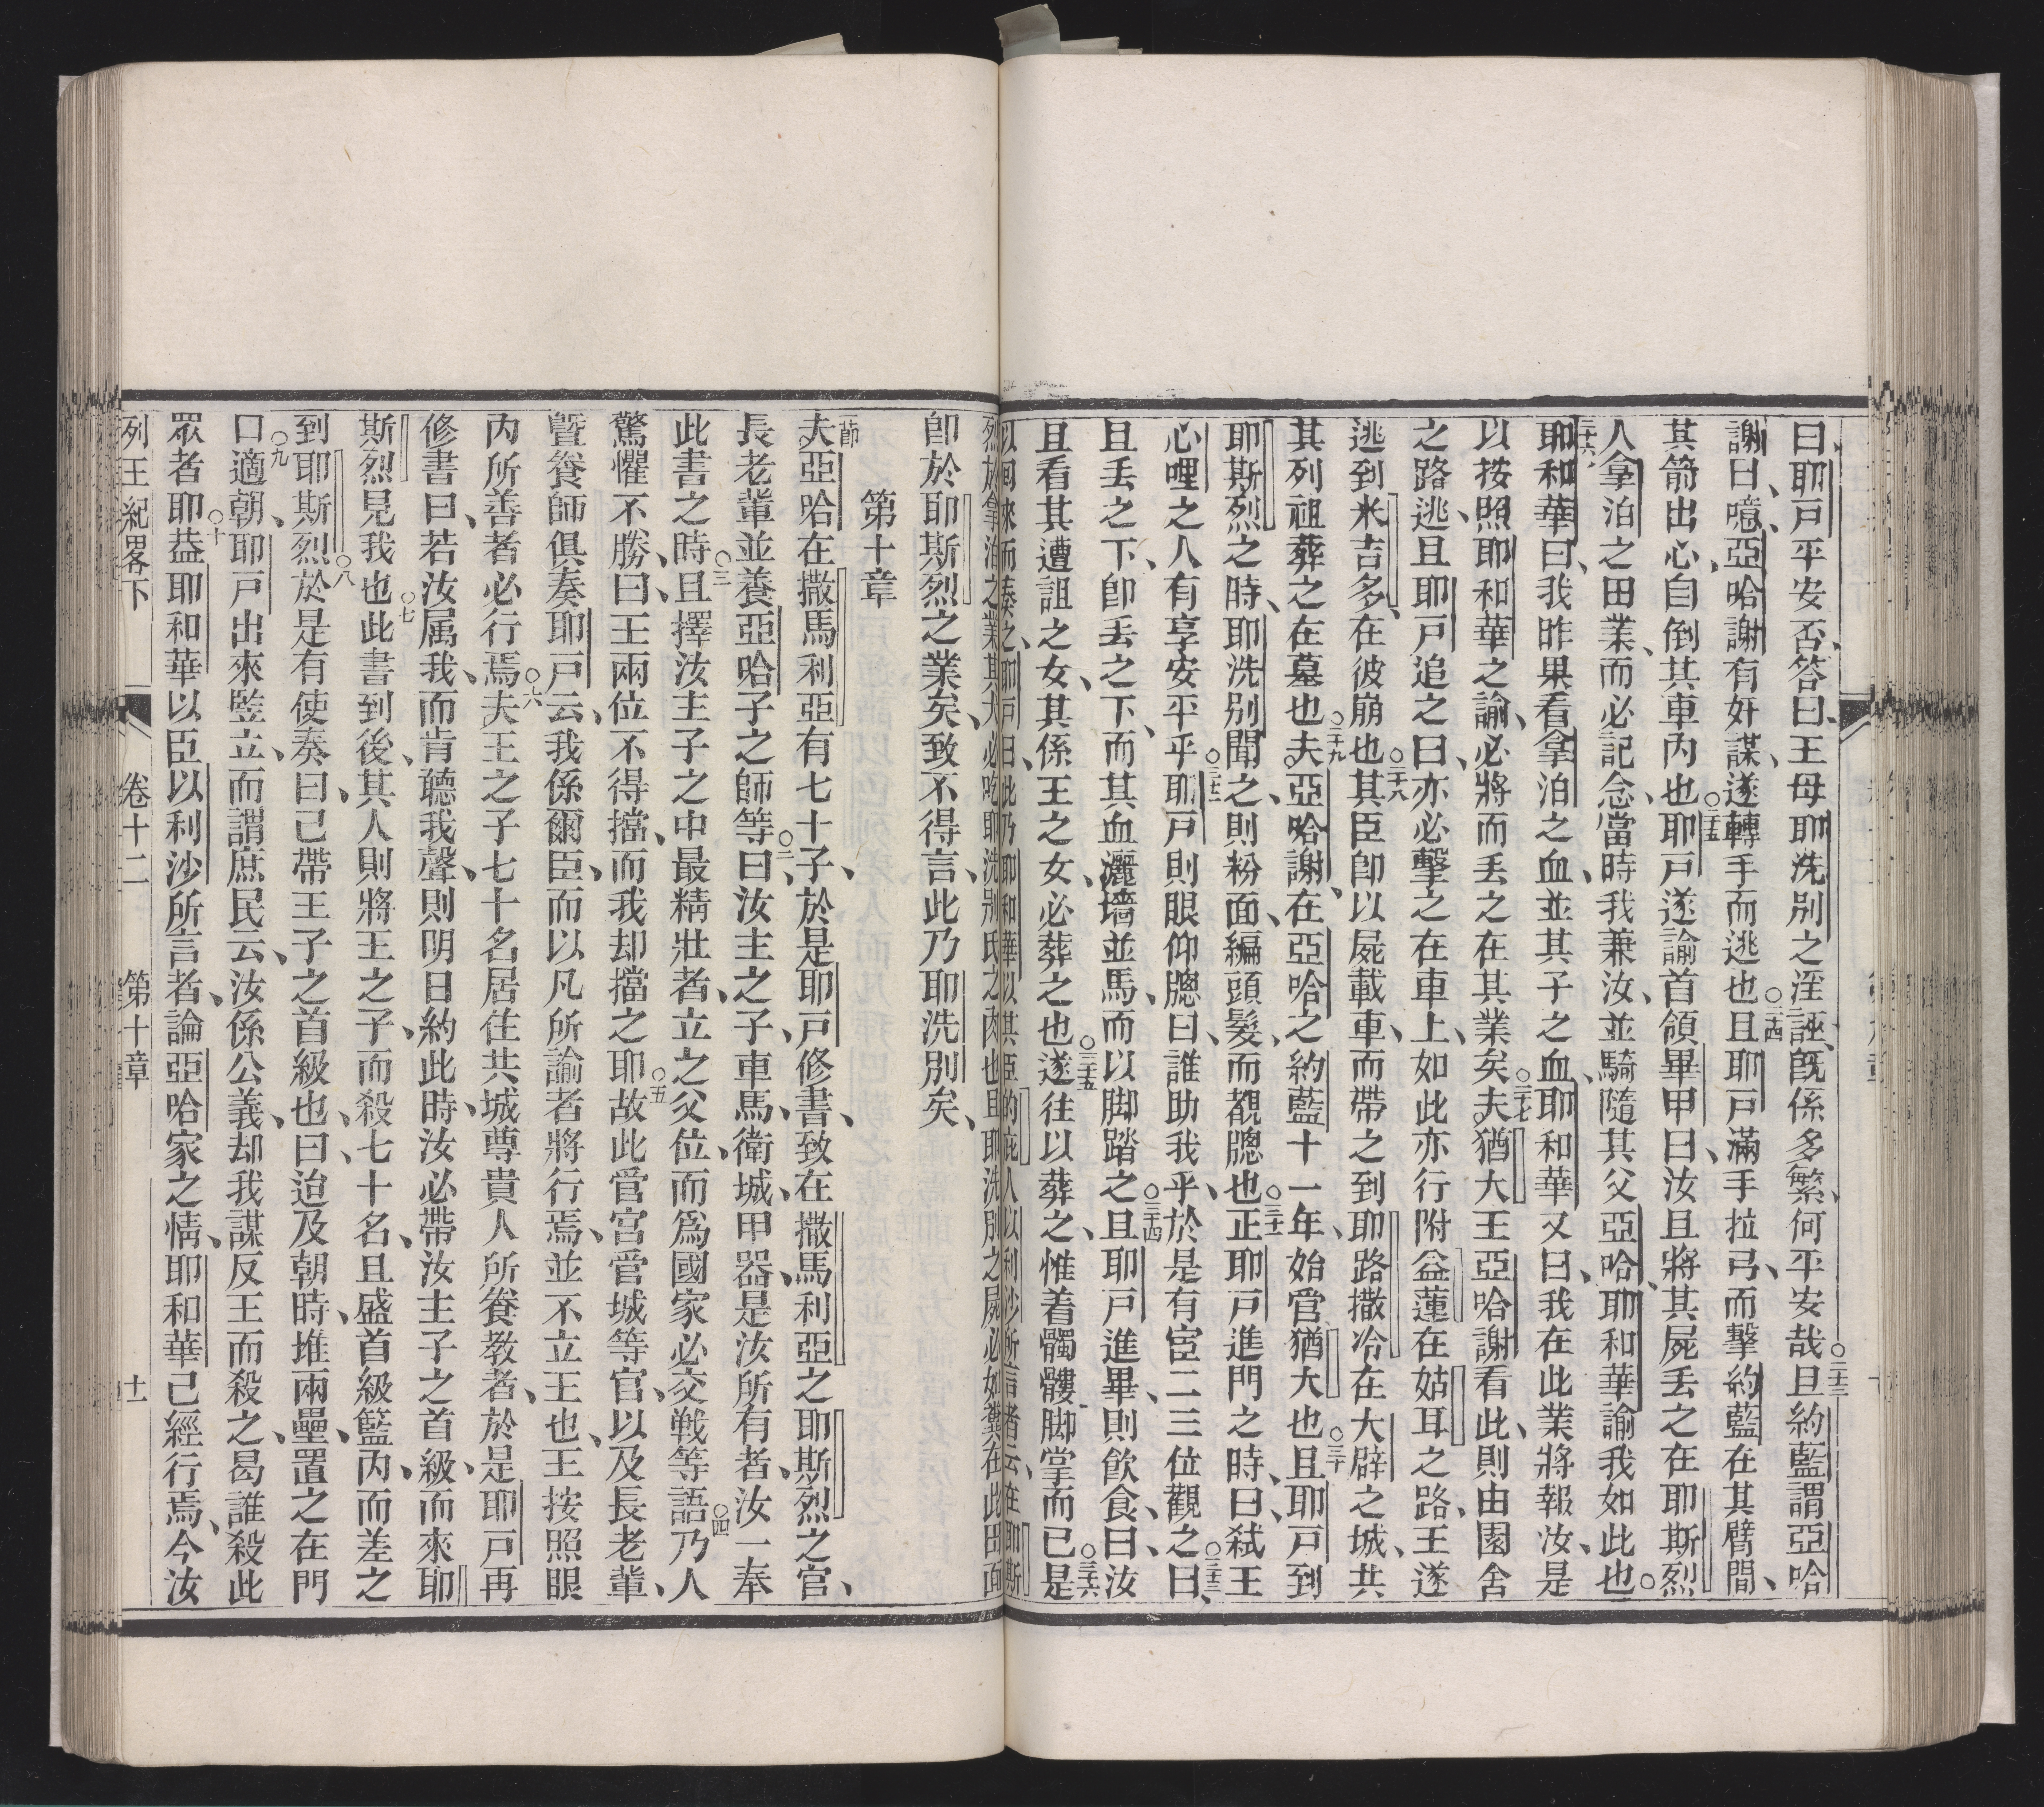 曰、耶戸平安否、答曰、王母耶洗別之淫誣、旣係多繁、何平安哉○二十三且約藍謂亞哈
謝曰、噫、亞哈謝有奸謀、遂轉手而逃也○二十四且耶戸滿手拉弓、而擊約藍在其臂間、
其箭出心、自倒其車內也○二十五耶戸遂諭首領畢甲曰、汝且將其屍丟之在耶斯烈
人拿泊之田業、而必記念、當時我兼汝、並騎隨其父亞哈、耶和華諭我如此也○
二十六耶和華曰、我昨果看拿泊之血、並其子之血、耶和華又曰、我在此業將報汝、是
以按照耶和華之諭、必將而丟之在其業矣○二十七夫猶大王亞哈謝看此、則由園舍
之路、逃且耶戸追之曰、亦必擊之在車上、如此亦行附益蓮在姑耳之路、王遂
逃到米吉多、在彼崩也○二十八其臣卽以屍載車、而帶之到耶路撒冷在大辟之城、共
其列祖葬之在墓也○二十九夫亞哈謝、在亞哈之約藍十一年、始管猶大也○三十且耶戸到
耶斯烈之時、耶洗別聞之、則粉面、編頭髮、而覩牕也○三十一正耶戸進門之時、曰、弒王
心哩之人有享安平乎○三十二耶戸則眼仰牕曰、誰助我乎、於是有宦二三位觀之○三十三曰、
且丟之下、卽丟之下、而其血灑墻並馬、而以脚踏之○三十四且耶戸進畢、則飮食、曰、汝
且看其遭詛之女、其係王之女、必葬之也○三十五遂往以葬之、惟着髑髏脚掌而已○三十六是
卽於耶斯烈之業矣、致不得言、此乃耶洗別矣、
第十章
一節夫亞哈在撒馬利亞有七十子、於是耶戸修書、致在撒馬利亞之耶斯烈之官、
長老輩並養亞哈子之師等○二曰、汝主之子、車馬、衛城、甲器、是汝所有者、汝一奉
此書之時○三且擇汝主子之中最精壯者、立之父位、而爲國家必交戦等語○四乃人
驚懼不勝、曰、王兩位不得擋、而我却擋之耶○五故此管宮管城等官、以及長老輩、
曁養師俱奏耶戸云、我係爾臣、而以凡所諭者將行焉、並不立王也、王按照眼
內所善者必行焉○六夫王之子七十名居住共城尊貴人所養教者、於是耶戸再
修書曰、若汝属我、而肯聽我聲、則明日約此時、汝必帶汝主子之首級、而來耶
斯烈見我也○七此書到後、其人則將王之子、而殺七十名、且盛首級籃內、而差之
到耶斯烈○八於是有使奏曰、已帶王子之首級也、曰、迨及朝時、堆兩壘、置之在門
口○九適朝、耶戸出來竪立、而謂庶民云、汝係公義、却我謀反王而殺之、曷誰殺此
眾者耶○十葢耶和華以臣以利沙所言者、論亞哈家之情、耶和華已經行焉、今汝
列王紀畧下 卷十二 第十章 十一